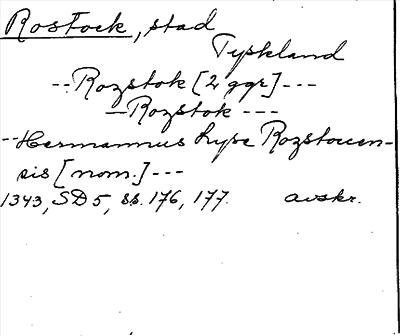 Rostock, stad
Tyskland
--Rozstok [2 ggr]---
--Rozstok ---
--Hermannus Lype Rozstocen-
sis [nom.]---
1343, SD 5, ss. 176, 177. avskr.